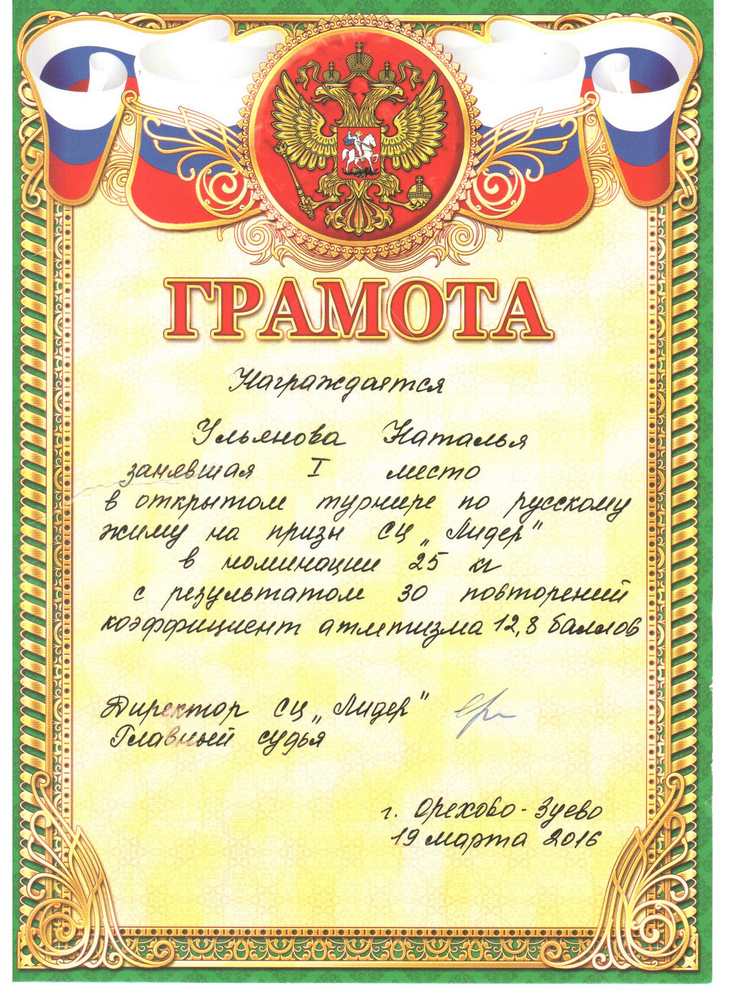 ГРАМОТА
Награждается
Ульянова Наталья
занявшая I место
в открытом турнире по русскому
жиму на призы СЦ „Лидер"
в номинации 25 кг
с результатом 30 повторений
коэффициент атлетизма 12,8 баллов
Директор СЦ „Лидер"
Главный судья
г. Орехово-Зуево
19 марта 2016